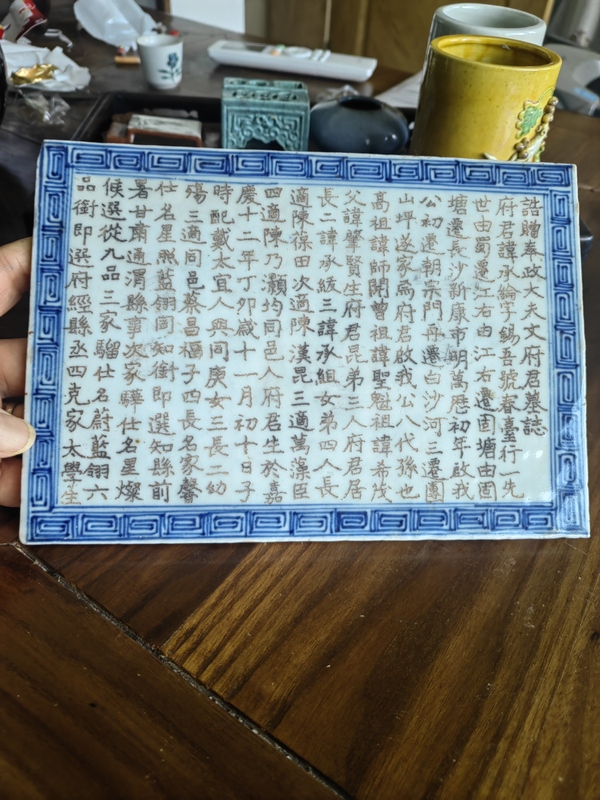 誥贈奉政大夫文府君墓誌
府君諱承綸字錫吾號春臺行一先
世由蜀遷江右由江右遷固塘由固
塘遷長沙新康市明萬歷初年啟我
公初遷朝宗門再遷白沙河三遷團
山坪遂家焉府君啟我公八代孫也
高祖諱師開曾祖諱聖魁祖諱希茂
父諱肇賢生府君昆弟三人府君居
長二諱承紱三諱承組女弟四人長
適陳葆田次適陳漢昆三適萬藻臣
四適陳乃灝均同邑人府君生於嘉
慶十二年丁卯歲十一月初十日子
時配戴太宜人與同庚女三長二幼
殤三適同邑蔡昌福子四長名家馨
仕名星照藍翎同知銜即選知縣前
署甘肅通渭縣事次家驊仕名星燦
候選從九品三家騮仕名蔚藍翎六
品銜即選府經縣丞四克家太學生